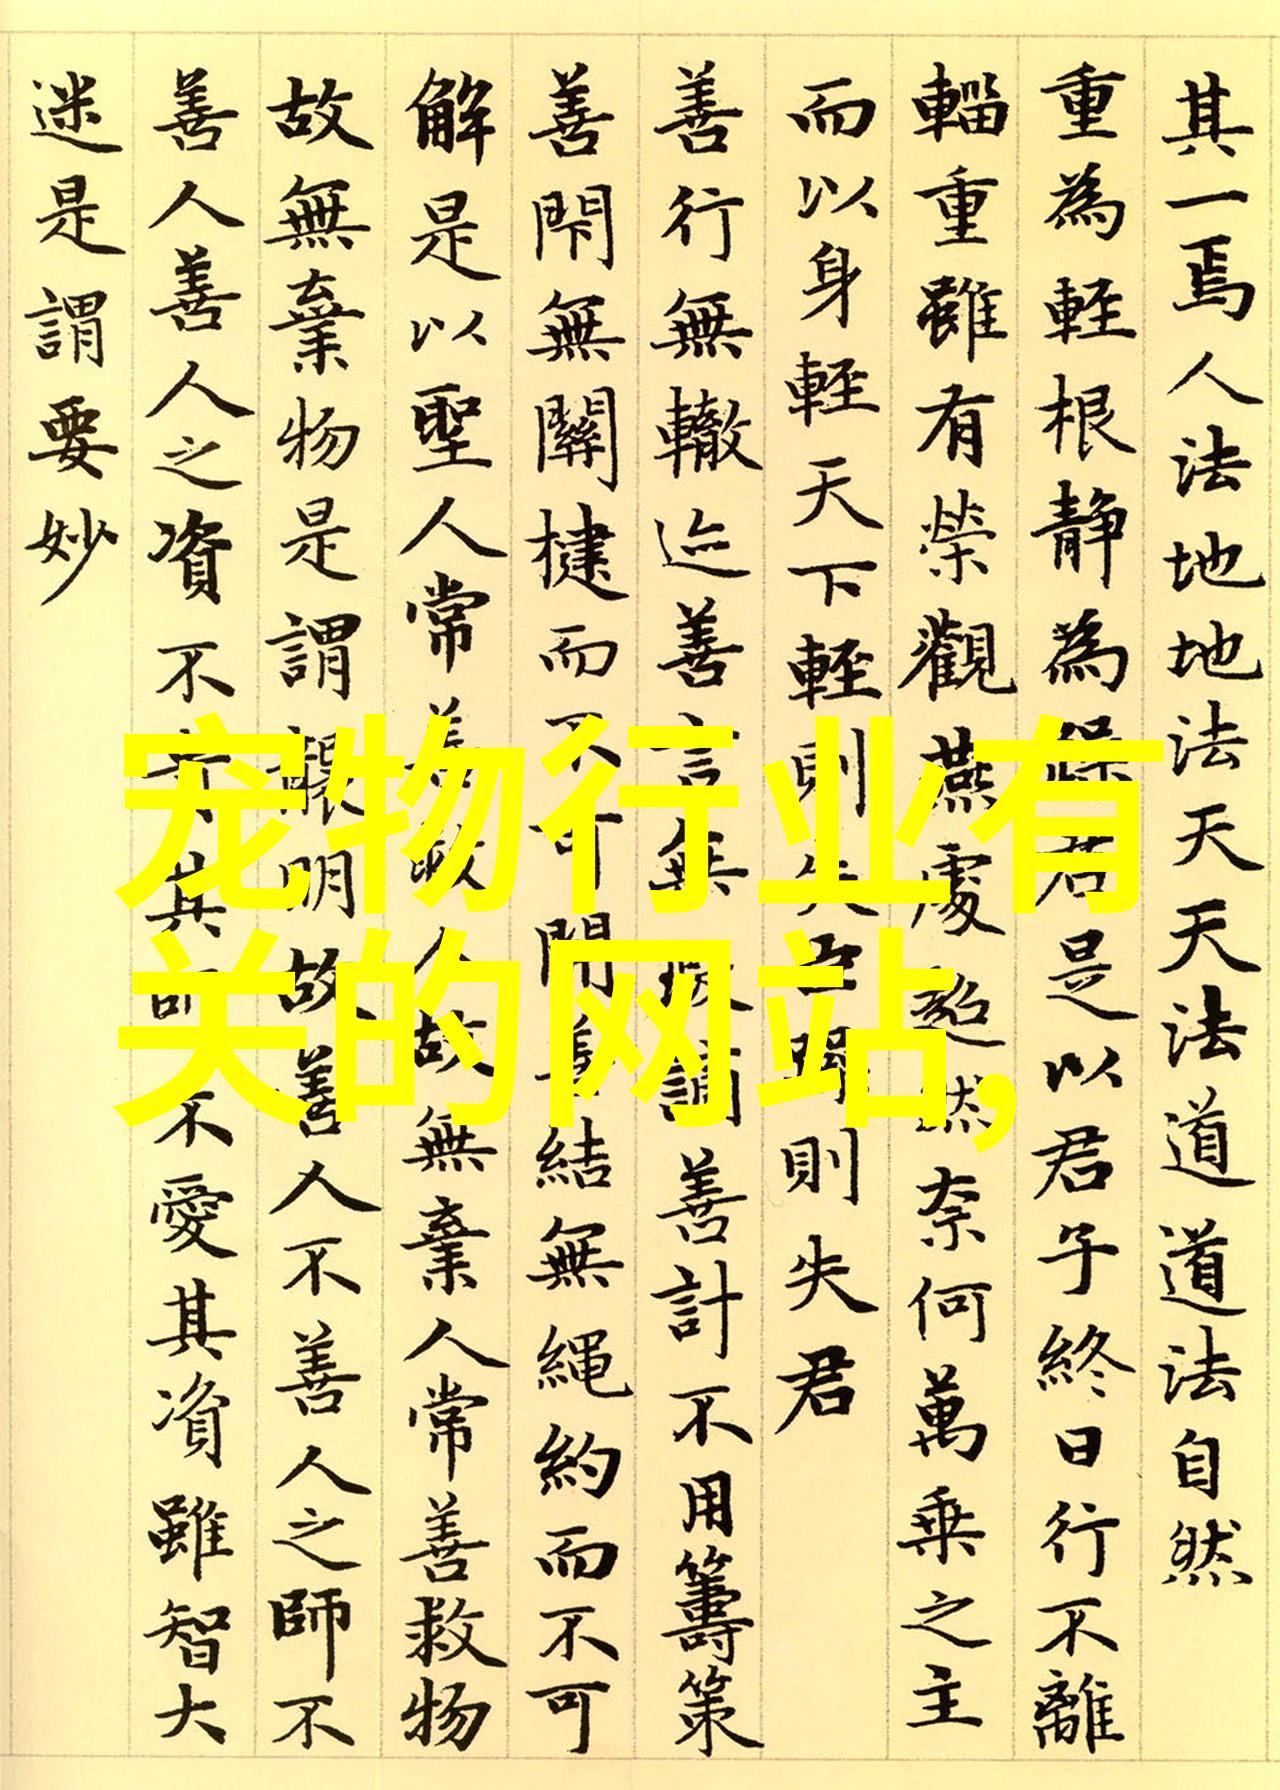 其一焉人法地地法天天法道道法自然
重為輕根靜為躁君是以君子終日行不離
輜重雖有榮觀燕處超然奈何萬乘之主
而以身輕天下輕則失臣躁則失君
善行無轍迹善言無瑕讁善計不用籌策
善閇無關楗而不可開善結無繩約而不可
解是以聖人常善救人故無棄人常善救物
故無棄物是謂襲明故善人不善人之師不
善人善人之資不貴其師不愛其資雖智大
迷是謂要妙
宠物行业有
关的网站,